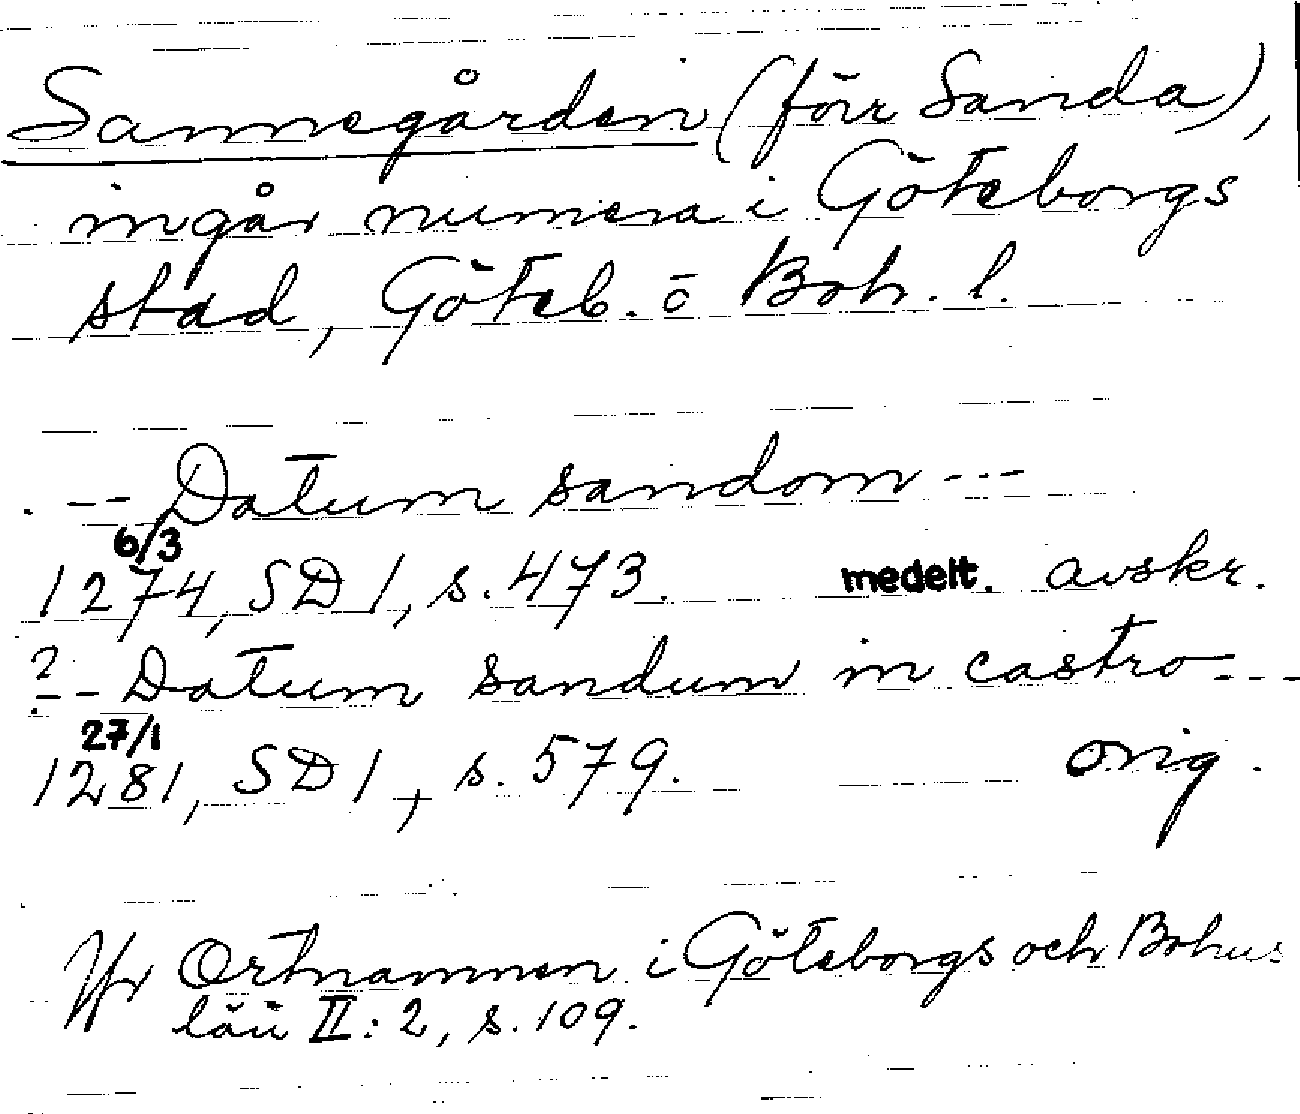 Sannegården (förr Sanda),
ingår numera i Göteborgs
stad, Göteb. o Boh. l.
-- Datum sandom ---
6/3
1274, SD 1, s. 473. medelt. avskr.
? -- Datum sandum in castro ---
27/1
1281, SD 1, s. 579. orig.
Jfr Ortnamnen i Göteborgs och Bohus
län II: 2, s. 109.